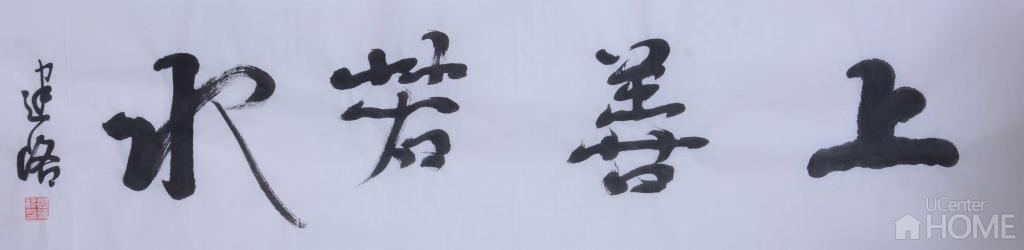 上善若水
建洛
UCenter
HOME